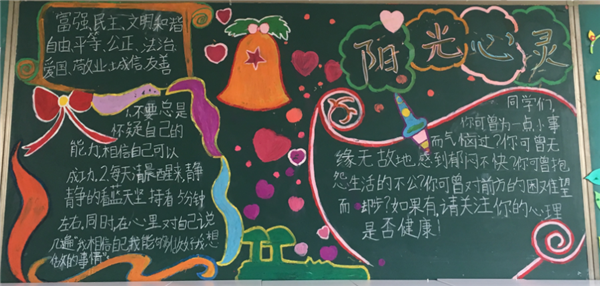 富强、民主、文明、和谐
自由、平等、公正、法治、
爱国、敬业、诚信、友善
阳光心灵
1.不要总是
怀疑自己的
能力,相信自己可以
成功.2.每天清晨醒来,静
静的看蓝天坚持着5分钟
左右,同时在心里对自己说
几遍“我相信自己我能够
事情”
同学们,
你可曾为一点小事
而气恼过?你可曾无
缘无故地感到郁闷不快?你可曾抱
怨生活的不公?你可曾对前方的困难望
而却步?如果有,请关注你的心理
是否健康!